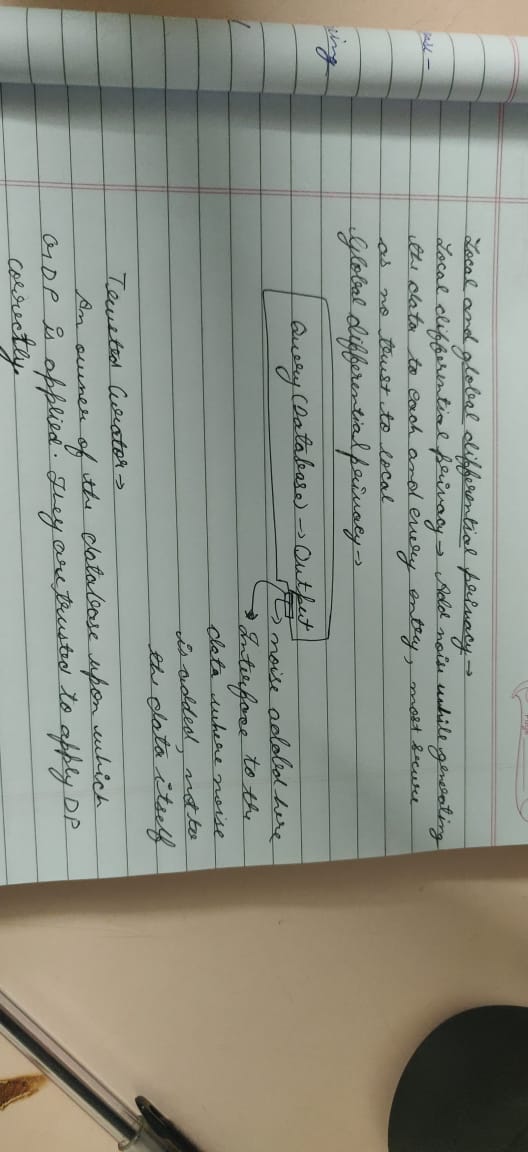 Local and global differential privacy →
Local differential privacy → Add noise while generating
the data to each and every entry, most secure
as no trust to local
Global differential privacy →
Query (Database) → Output
→ noise added here
→ Interface to the
data where noise
is added, not to
the data itself
Trusted Curator →
An owner of the database upon which
GDP is applied. They are trusted to apply DP
correctly.
ing